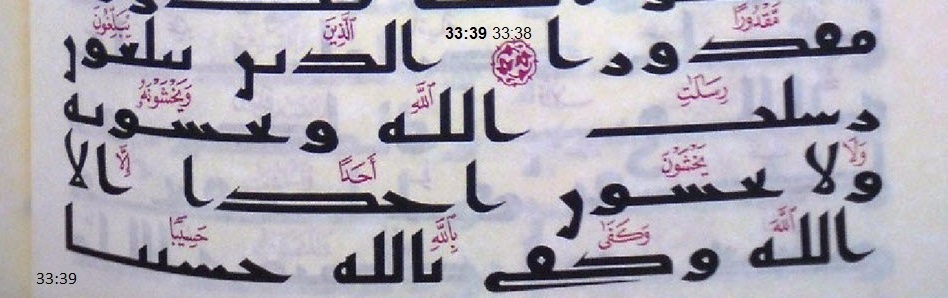 مَّقْدُورًا 33:39 33:38 ٱلَّذِينَ يُبَلِّغُونَ
مقدورا الذين يبلغون
رِسَٰلَٰتِ ٱللَّهِ وَيَخْشَوْنَهُۥ
رسلت الله ويخشونه
وَلَا يَخْشَوْنَ أَحَدًا إِلَّا
ولا يخشون احدا الا
ٱللَّهَ وَكَفَىٰ بِٱللَّهِ حَسِيبًا
الله وكفى بالله حسيبا
33:39